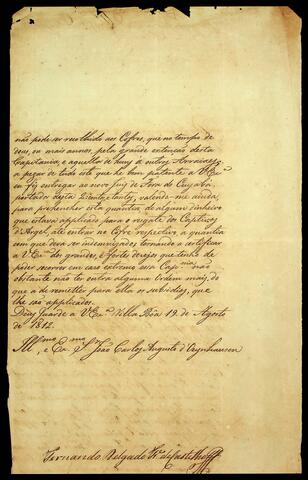 não pode ser recolhido aos Cofres, que no tempo de
dous, ou mais annos, pela grande extenção desta
Capitania, e aquelles de huns á outros Arraiaes,
a pezar de tudo isto que he bem patente a V. Exª
eu fiz entregar ao novo Juiz de Fora do Cuyabá,
portador desta trinta, e tantos, valendo-me ainda,
para prehencher esta quantia, de algum dinheiro
que estava applicado para o resgate dos Captivos
d'Argel, até entrar no Cofre respectivo a quantia
com que devia ser indemnizado: tornando a certificar
a V. Exª dos grandes, e fortes dezejos que tenho de
poder socorrer em cazo extremo essa Capnia não
obstante não ter outra alguma Ordem mais, do
que a de remetter para ella os subsidios, que
lhe são applicados.
Deos Guarde a V. Exª Villa Boa 19 de Agosto
de 1812.
Illmo e Exmo Sr João Carlos Augusto d'Oeynhausen
Fernando Delgado Fr. de Castilho